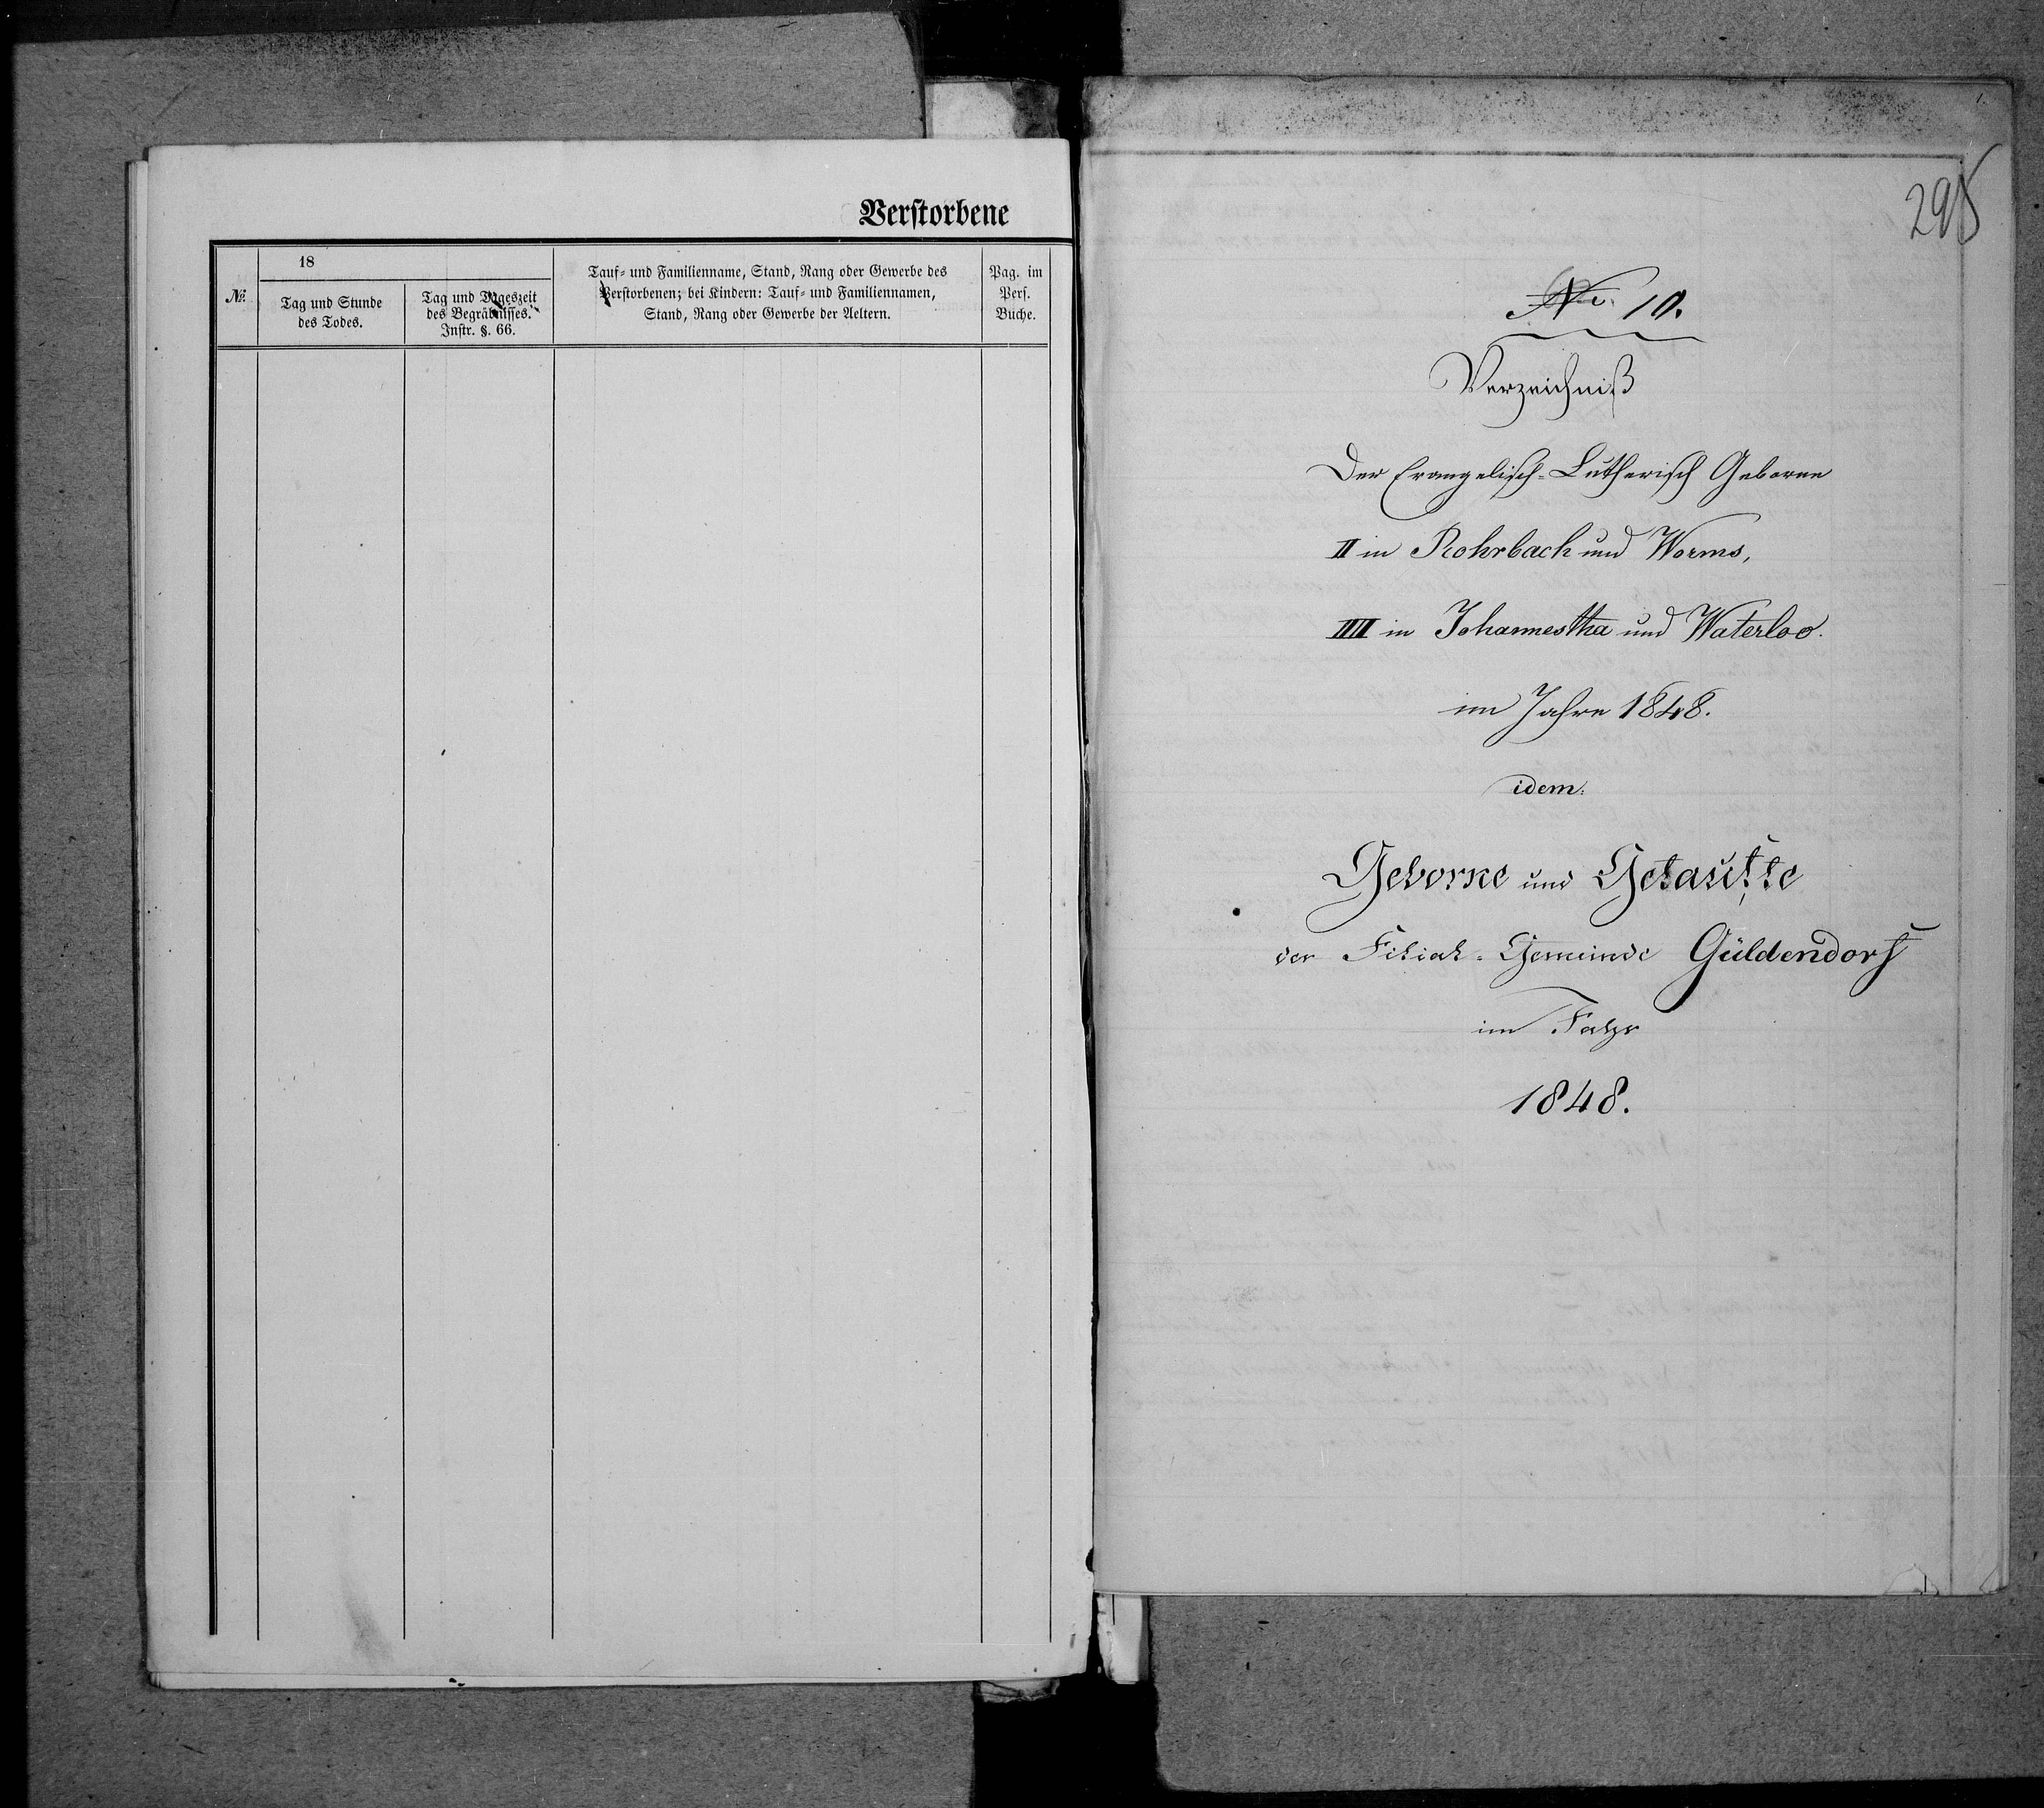 Verstorbene
№
18
Tag und Stunde
des Todes.
Tag und Tageszeit
des Begräbnisses.
Instr. §. 66.
Tauf- und Familienname, Stand, Rang oder Gewerbe des
Verstorbenen; bei Kindern: Tauf- und Familiennamen,
Stand, Rang oder Gewerbe der Aeltern.
Pag. im
Pers.
Buche.
No. 10.
Verzeichniß
Der Evangelisch-Lutherisch Geborne
II in Rohrbach und Worms,
IIII in Johannestha und Waterloo.
im Jahre 1848.
idem:
Geborne und Getaufte
der Filial-Gemeinde Güldendorf
im Jahr
1848.